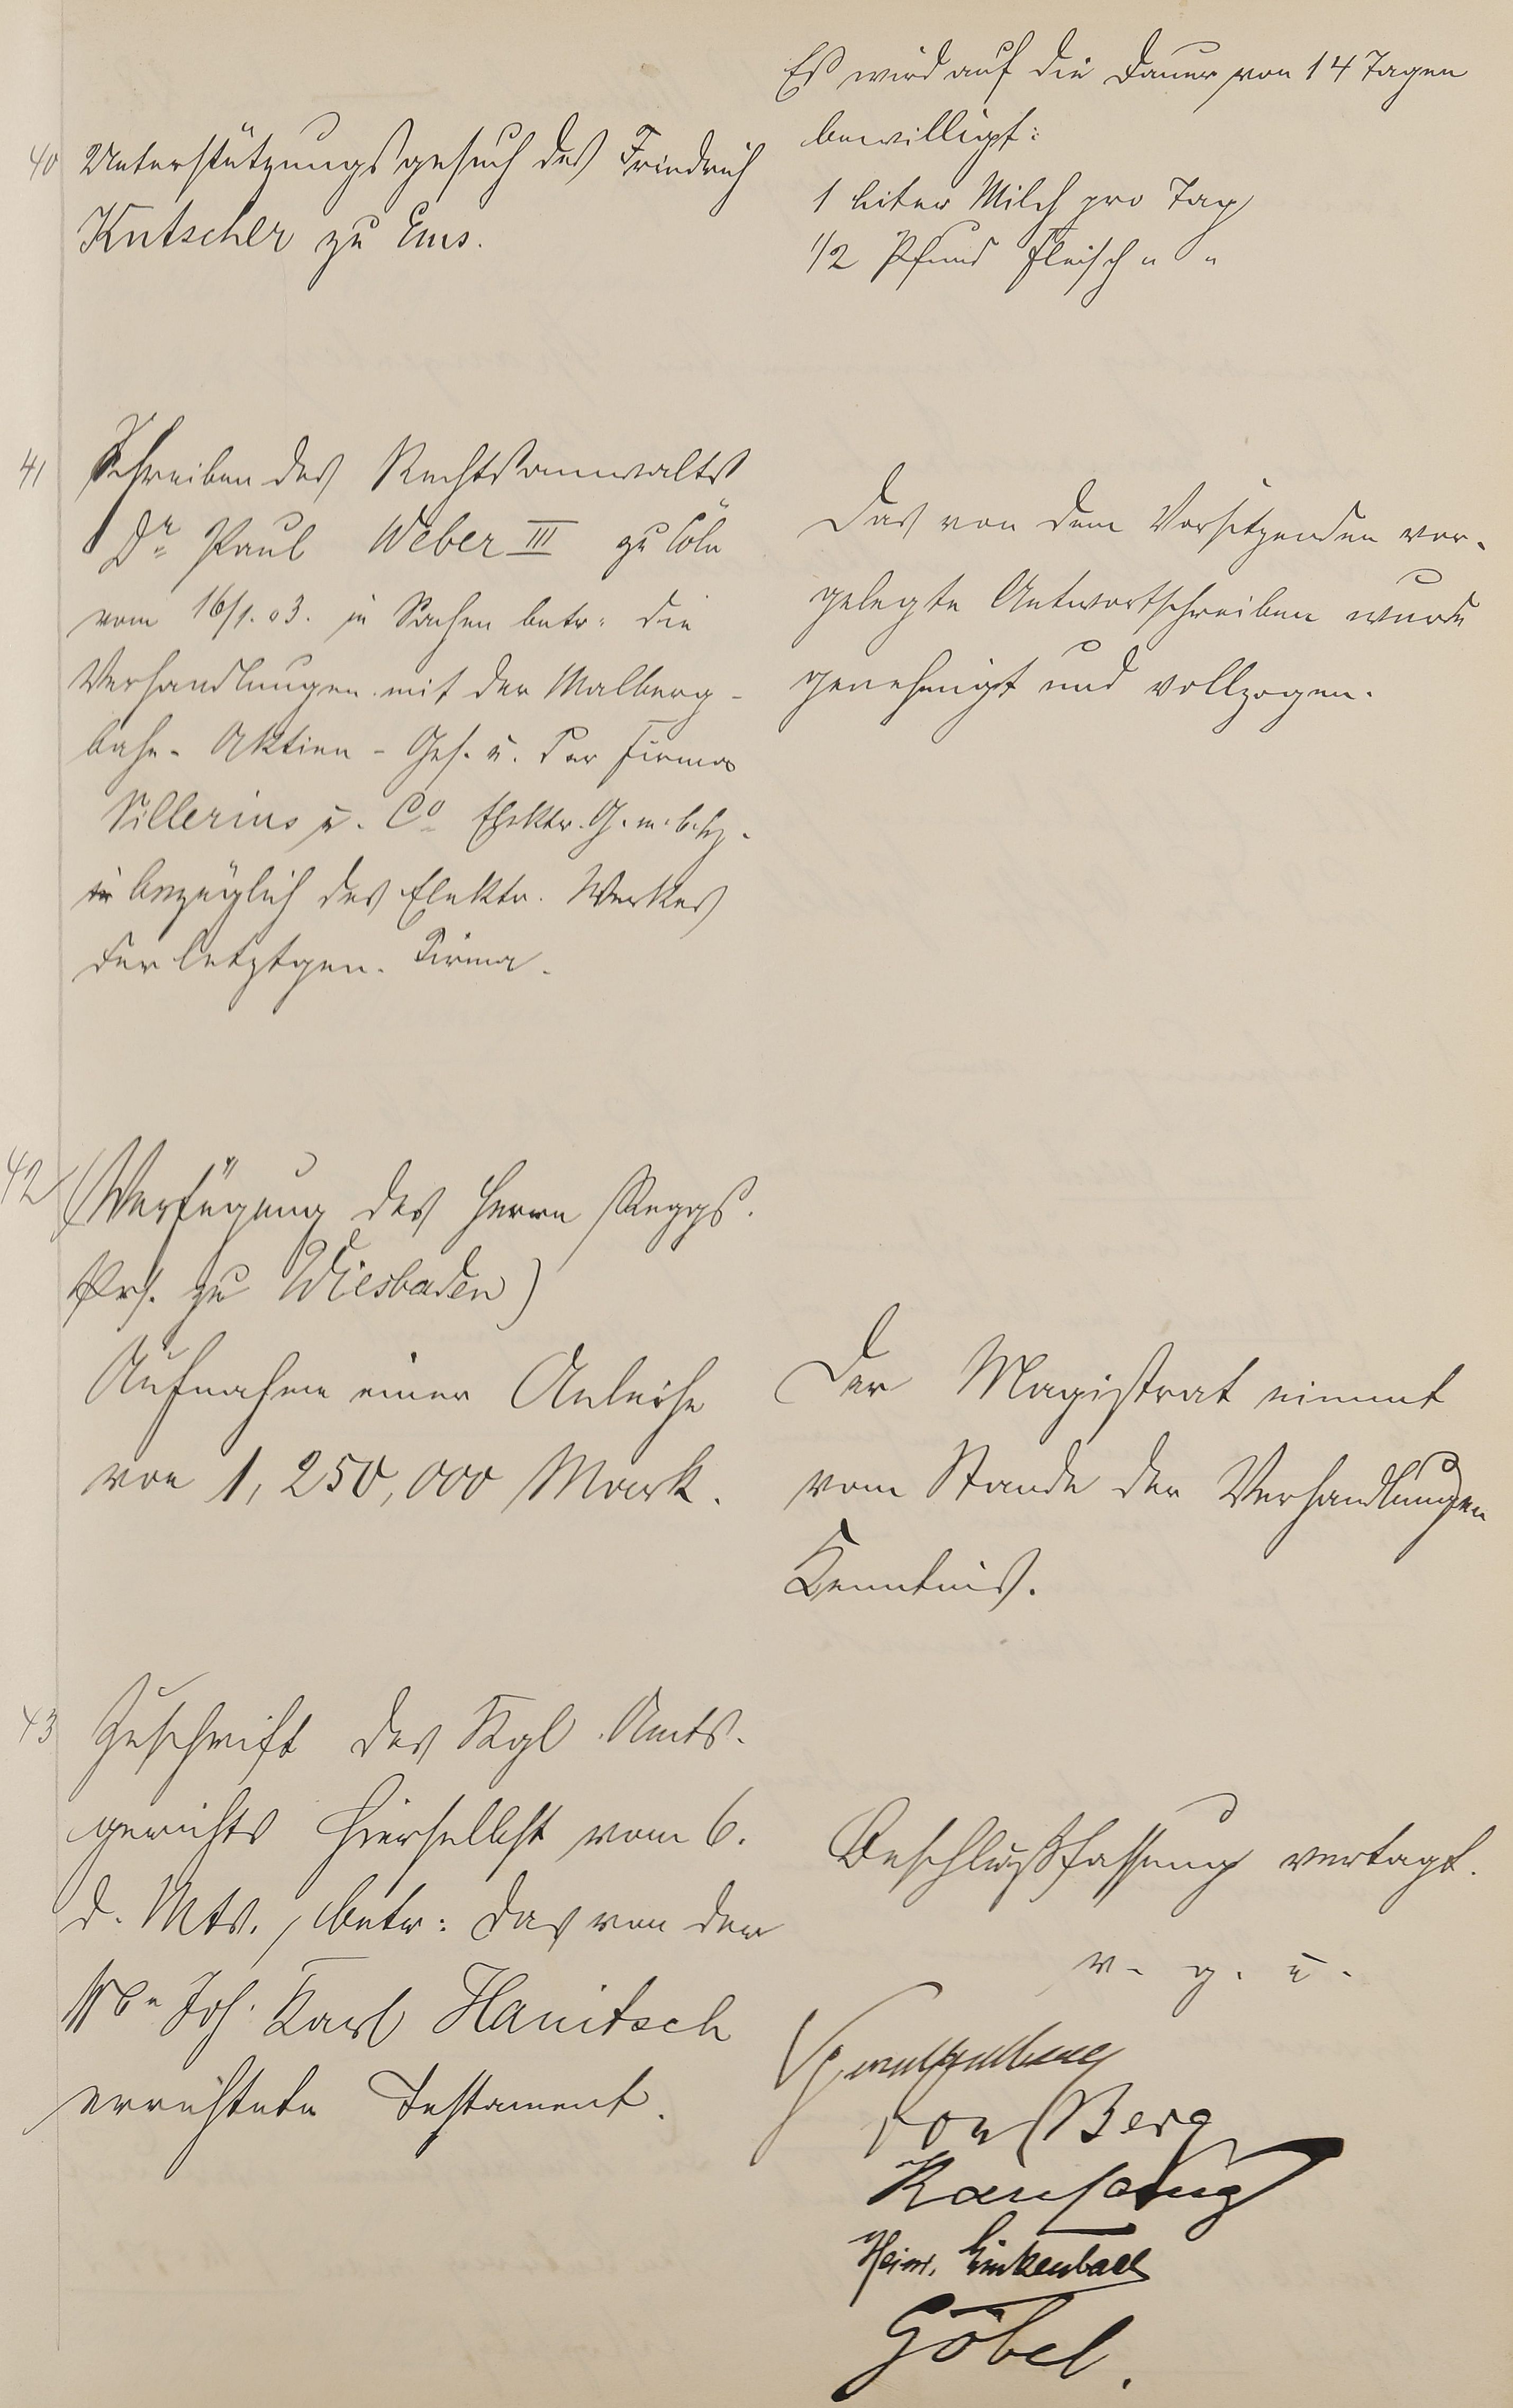 40 Unterstützungsgesuch des Friedrich
Kutscher zu Ems.
Es wird auf die Dauer von 14 Tagen
bewilligt:
1 Liter Milch pro Tag
1/2 Pfund Fleisch " "
41 Schreiben des Rechtsanwalts
Dr Paul Weber III zu Cöln
vom 16/1.03. in Sachen betr. die
Verhandlungen mit der Malberg-
bahn-Aktien-Ges. u. der Firma
u. Co Elektr. G. m. b. H.
bezüglich des Elektr. Werkes
der letztgen. Firma.
Das von dem Vorsitzenden vor-
gelegte Antwortschreiben wurde
genehmigt und vollzogen.
42 (Verfügung des Herrn Reggs.
Prs. zu Wiesbaden)
Aufnahme einer Anleihe
von 1,250,000 Mark.
Der Magistrat nimmt
vom Stande der Verhandlungen
Kenntniß.
43 Zuschrift des Kgl. Amts-
gerichts hierselbst vom 6.
d. Mts., betr: das von der
Wwe Joh. Karl Hanitsch
errichtete Testament.
Beschlußfassung vertagt.
v. g. u.
von Berg
Heinr. Linkenbach
Göbel.